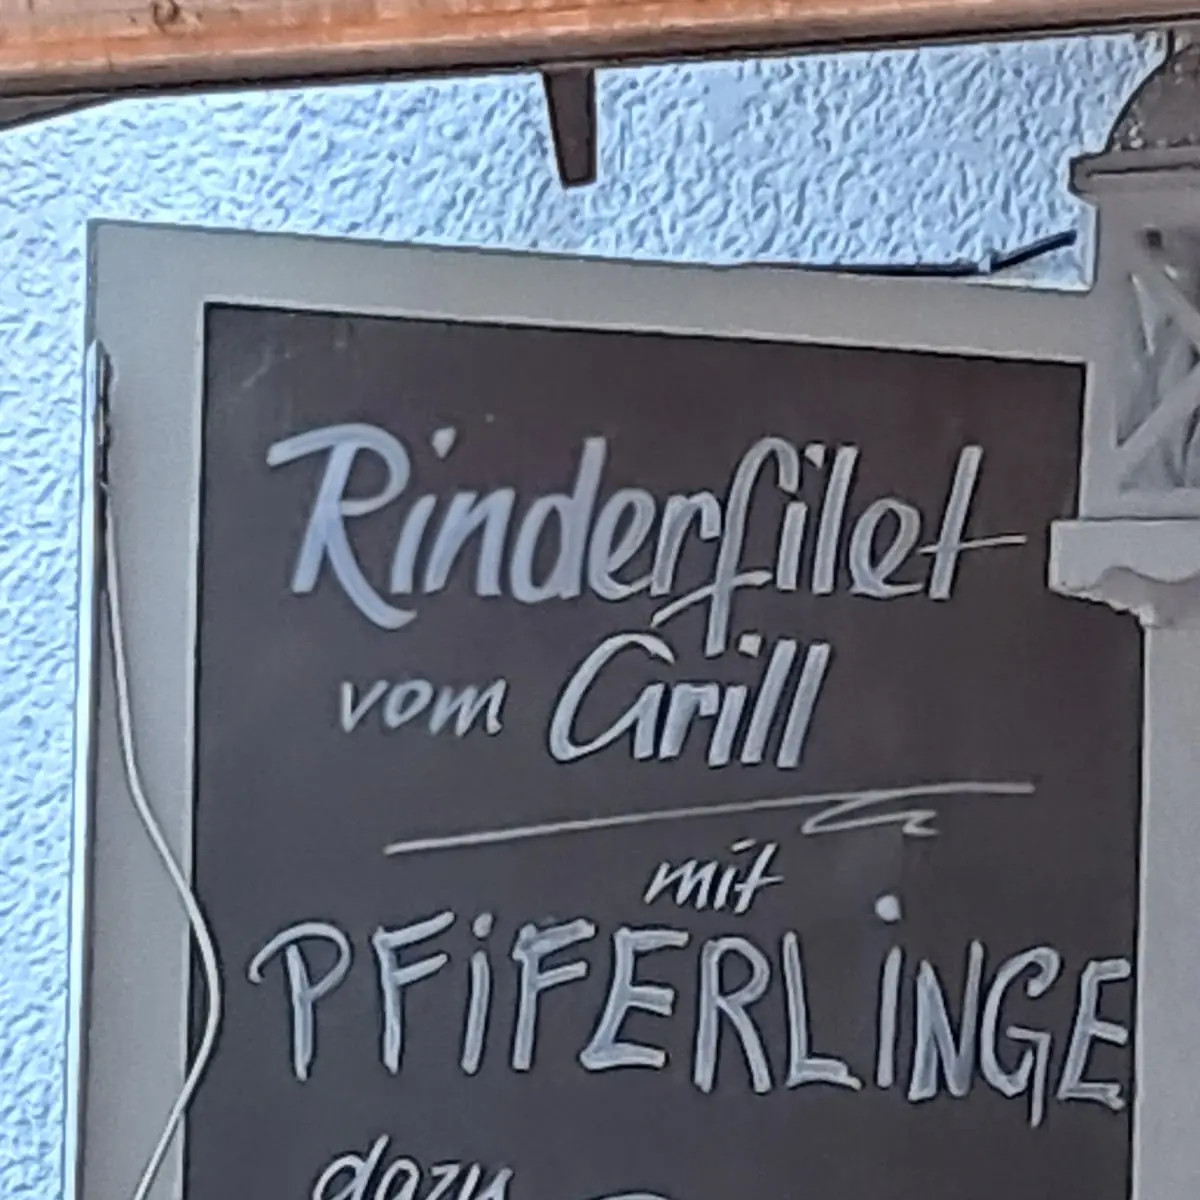 Rinderfilet
vom Grill
mit
PFiFERLiNGE
dazu